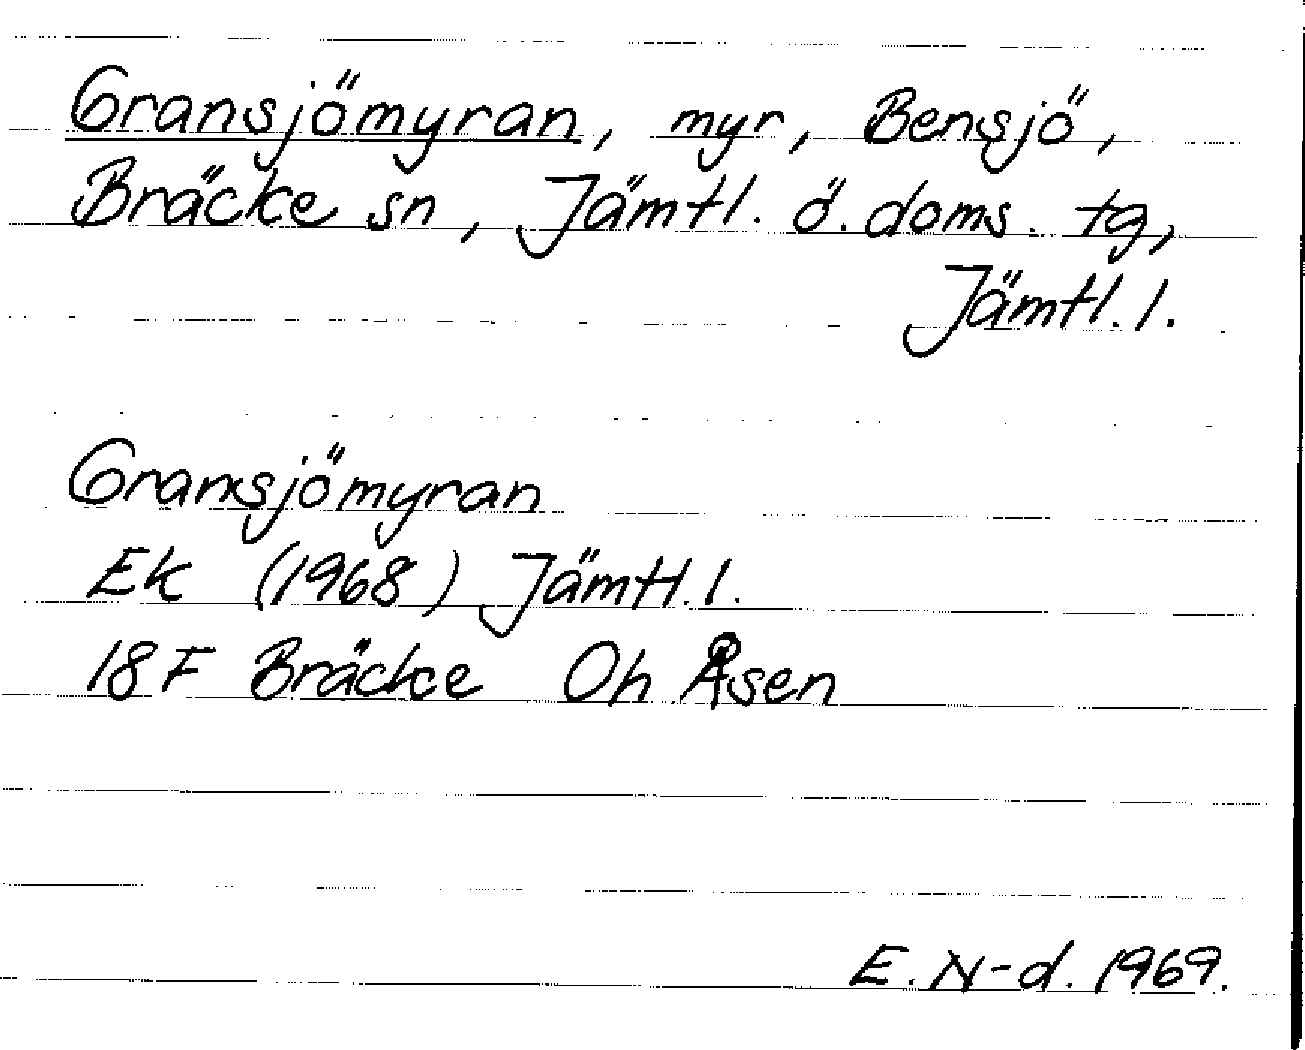 Gransjömyran, myr, Bensjö,
Bräcke sn, Jämtl. ö. doms. tg,
Jämtl. l.
Gransjömyran
Ek (1968) Jämtl. l.
18F Bräcke Oh Åsen
E. N-d. 1969.